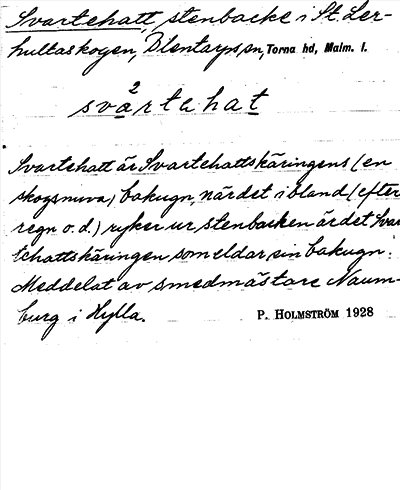 Svartehatt, stenbacke i St. Ler-
hultaskogen, Blentarps sn, Torna hd, Malm. l.
svartahat
Svartehatt är Svartehattskäringens (en
skogsnuva) bakugn, när det ibland (efter
regn o.d.) ryker ur stenbacken är det Svar
tehattskäringen som eldar sin bakugn.
Meddelat av smedmästare Naum-
burg i Hylla.
P. HOLMSTRÖM 1928